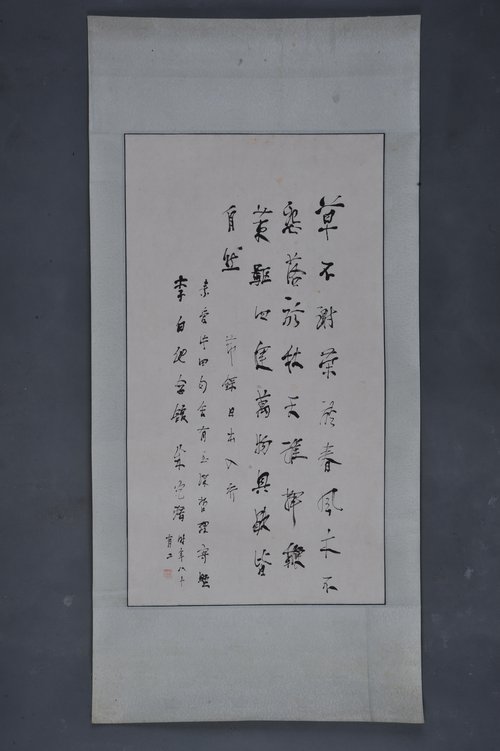 草不謝榮於春風木不
怨落於秋天誰揮鞭
策驅四運萬物興歇皆
自然 節錄日出入行
素愛此四句含有至深哲理
李白 時年八十
有二